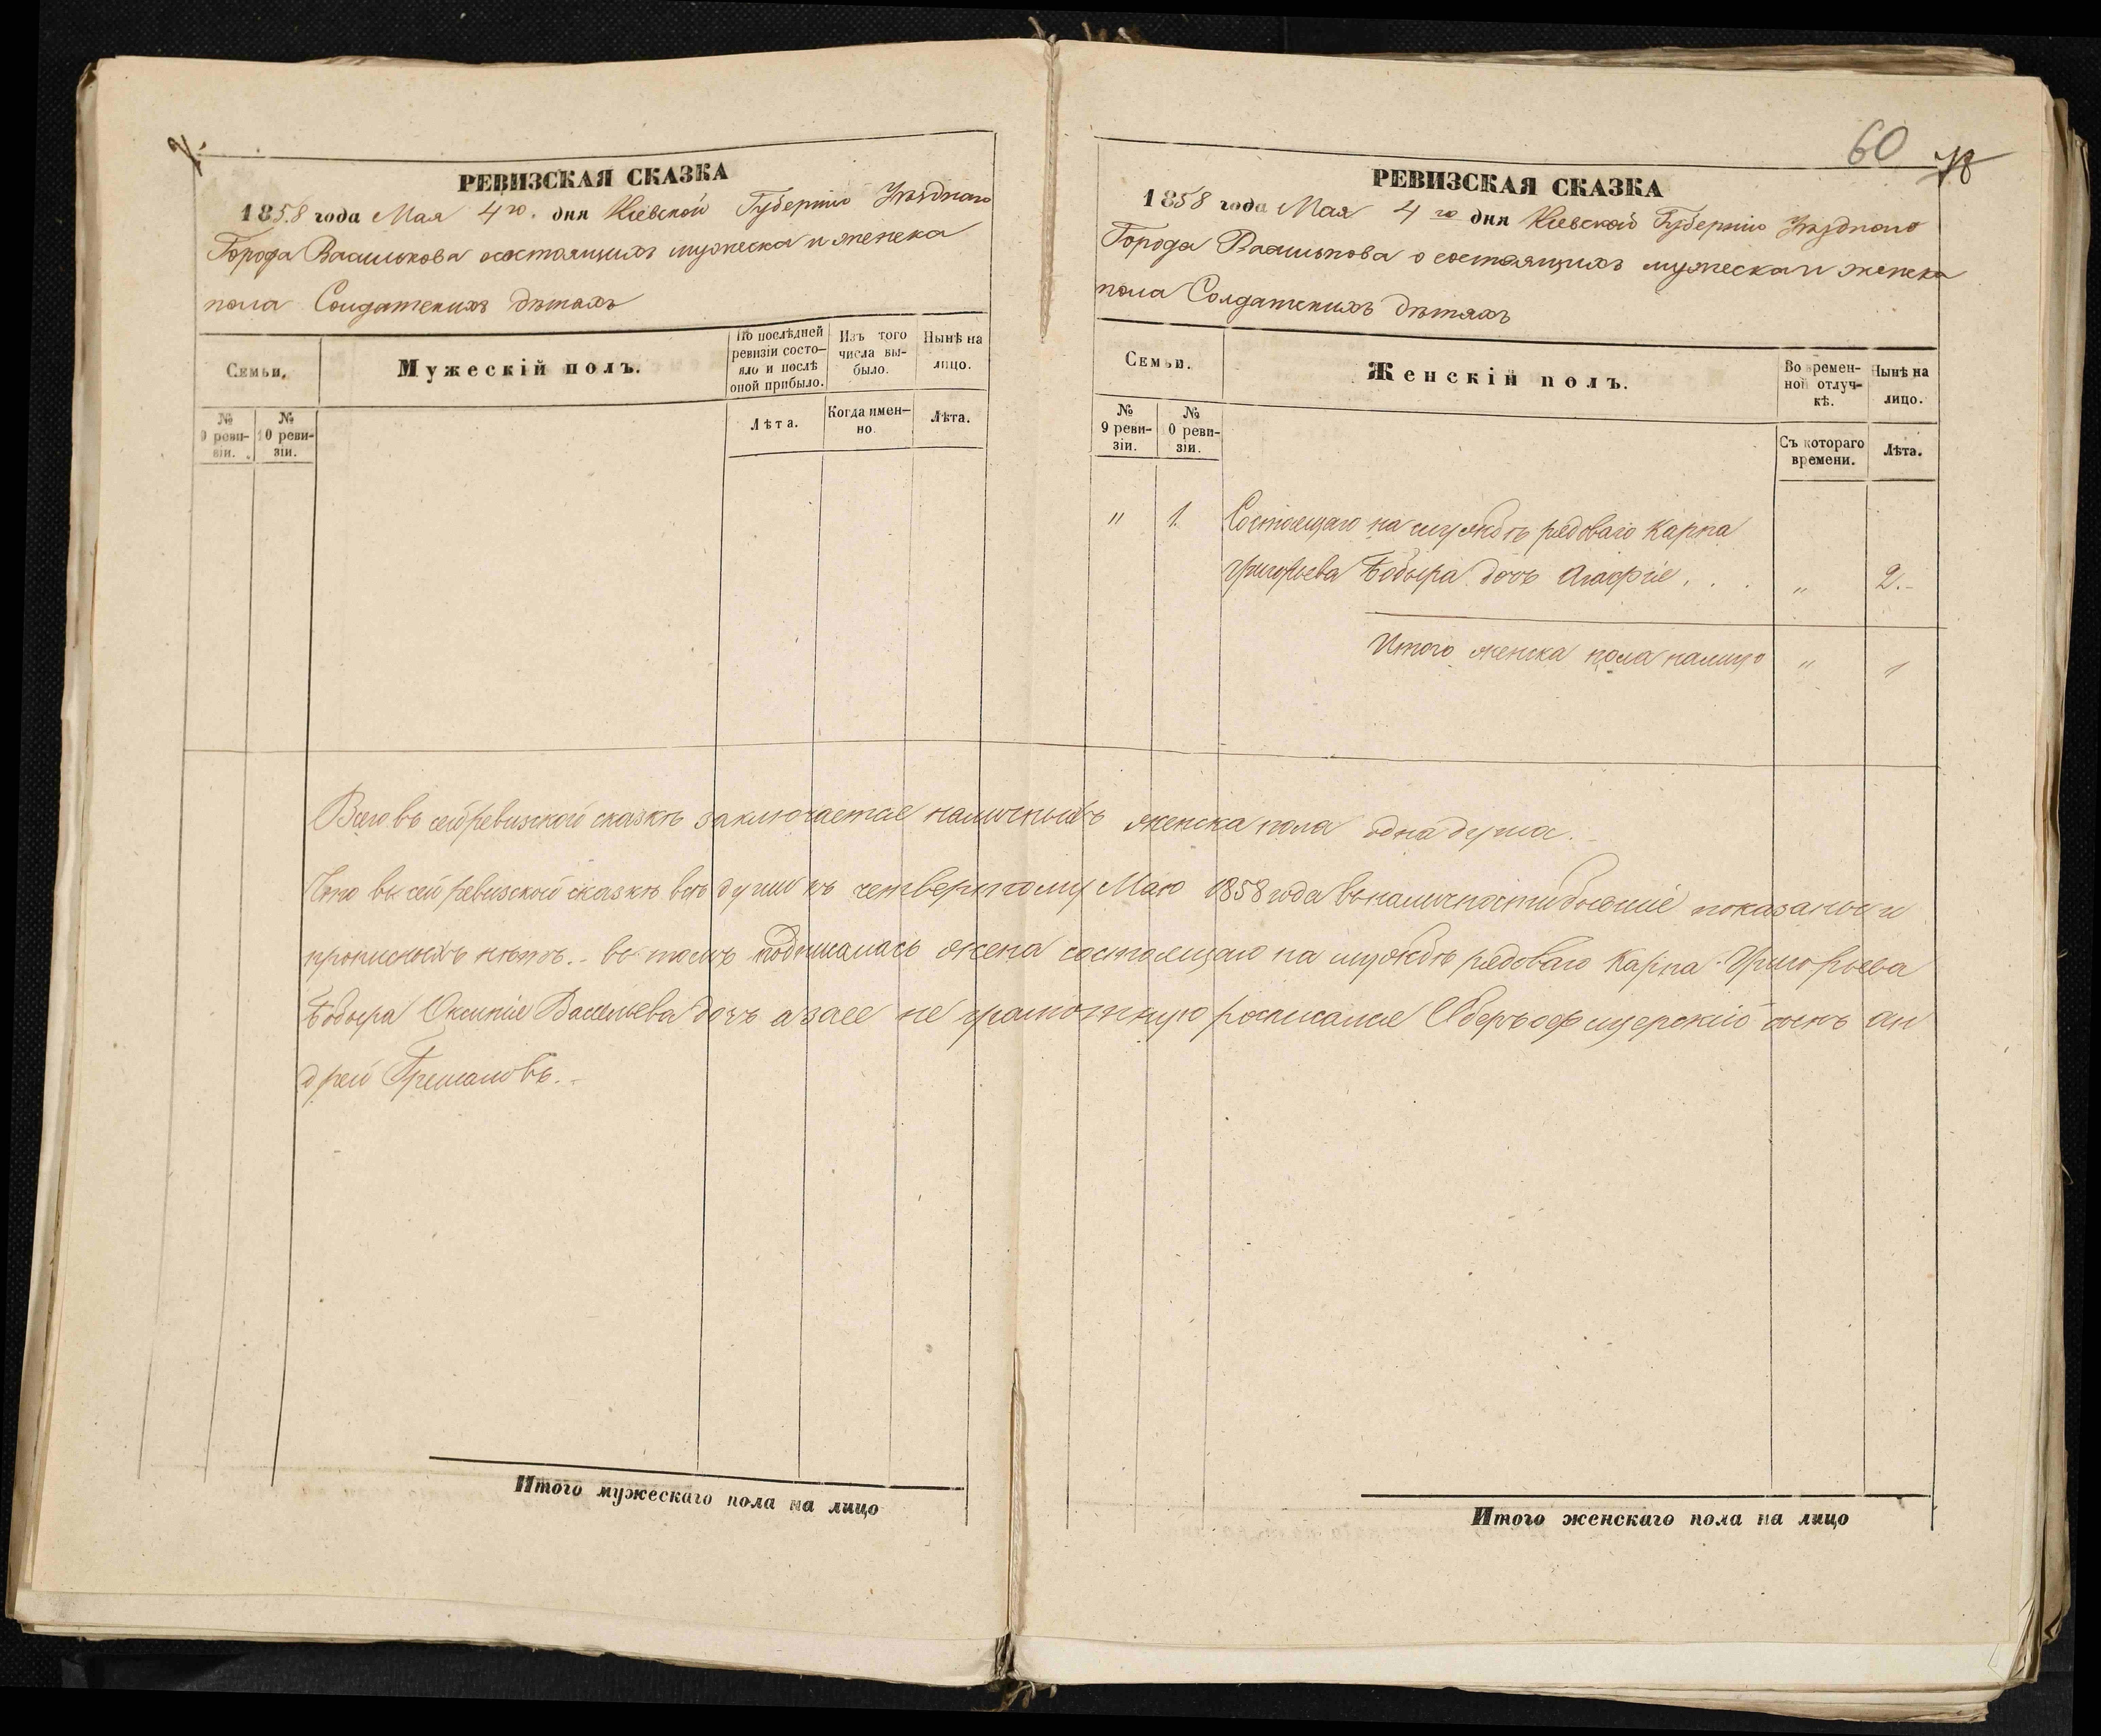 РЕВИЗСКАЯ СКАЗКА
1858 года Мая 4го. дня Кіевской Губерніи Уѣзднаго
Города Василькова о состоящихъ мужеска и женска
пола Солдатскихъ дѣтяхъ
Семьи.
Мужескій полъ.
По послѣдней ревизіи состояло и послѣ оной прибыло.
Изъ того числа выбыло.
Нынѣ на лицо.
№ 9 ревизіи.
№ 10 ревизіи.
Лѣта.
Когда именно.
Лѣта.
Итого мужескаго пола на лицо
60
РЕВИЗСКАЯ СКАЗКА
1858 года Мая 4го дня Кіевской Губерніи Уѣзднаго
Города Василькова о состоящихъ мужеска и женска
пола Солдатскихъ дѣтяхъ
Семьи.
Женскій полъ.
Во временной отлучкѣ.
Нынѣ на лицо.
№ 9 ревизіи.
№ 10 ревизіи.
Съ котораго времени.
Лѣта.
" 1. Состоящаго на службѣ рядоваго Карпа
Григорьева Бобыра дочь Агафія . . . " 2.-
Итого женска пола налицо " 1
Всего въ сей ревизской сказкѣ заключается наличныхъ женска пола одна душа.
Что въ сей ревизской сказкѣ всѣ души къ четвертому Маю 1858 года въ наличности бывшіе показаны и
прописныхъ нѣтъ.- въ томъ подписалась жена состоящаго на службѣ рядоваго Карпа Григорьева
Бобыра Оксинія Васильева дочь а за ее не грамотную росписался Оберъ офицерскій сынъ Ан
дрей
Итого женскаго пола на лицо